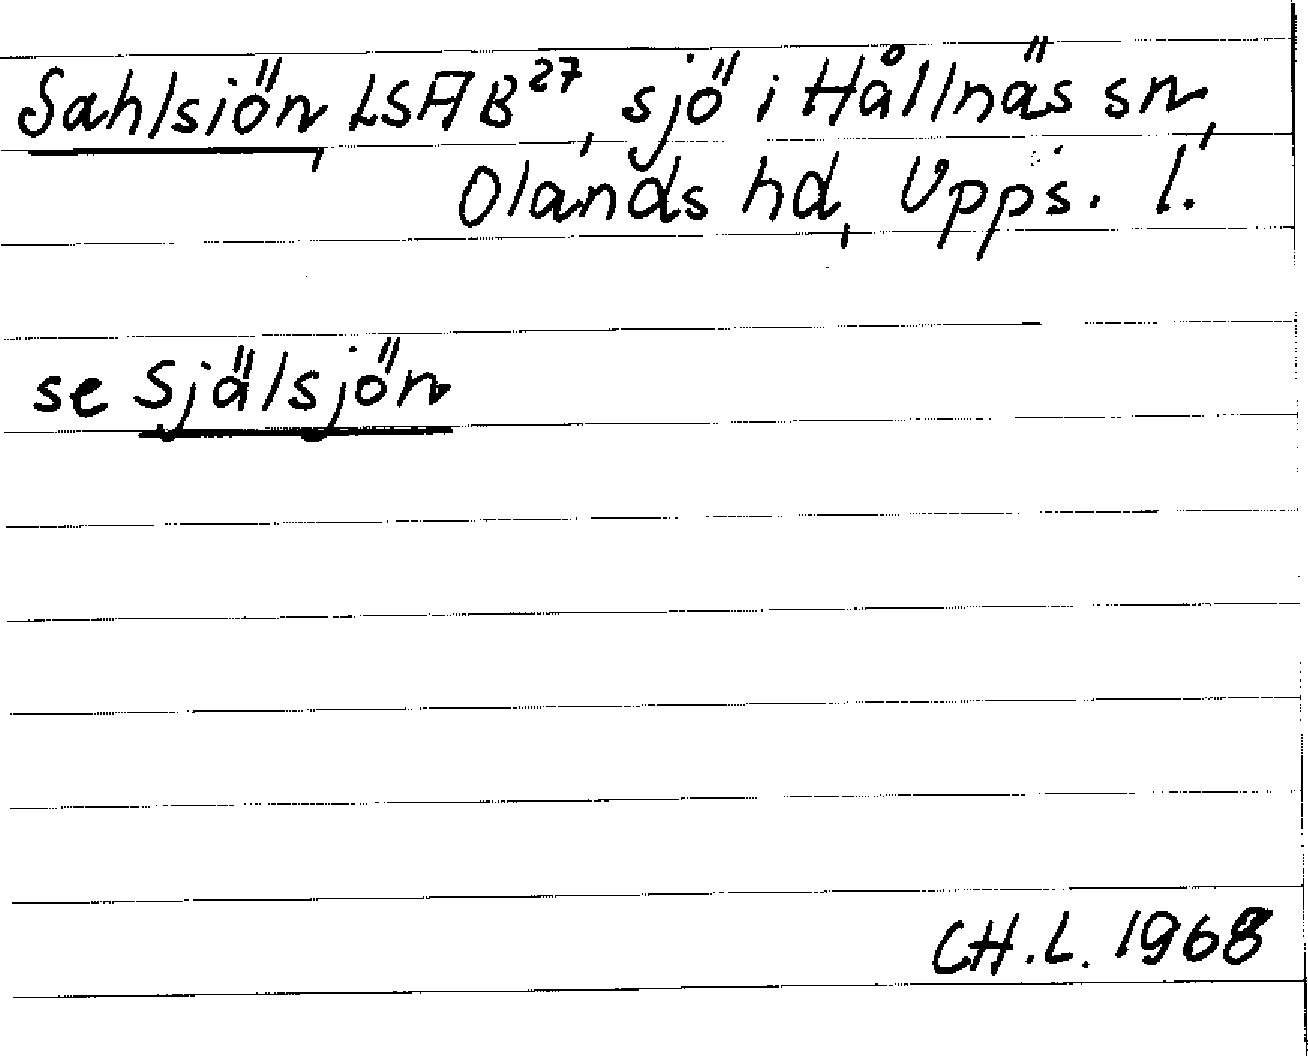 Sahlsiön, LSA B27, sjö i Hållnäs sn,
Olands hd, Upps. l.
se Själsjön
CH.L. 1968